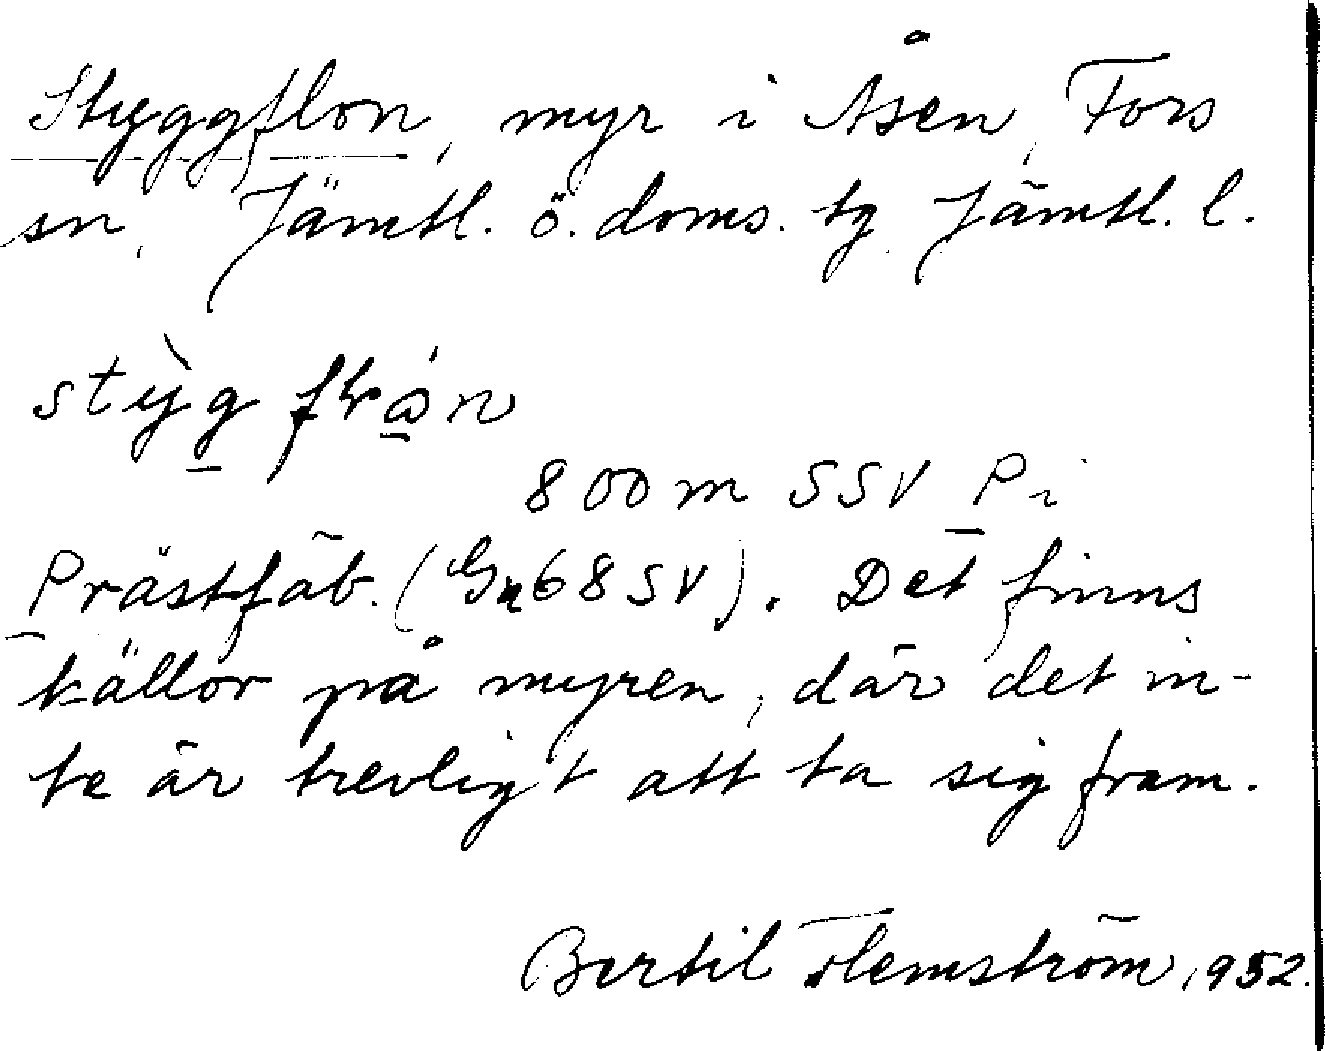 Styggflon, myr i Åsen, Fors
sn, Jämtl. ö. doms. tg Jämtl. l.
stỳg flró̱n
800 m SSV P i
Prästfäb. (Gn68SV). Det finns
källor på myren, där det in-
te är trevligt att ta sig fram.
Bertil Flemström, 1952.